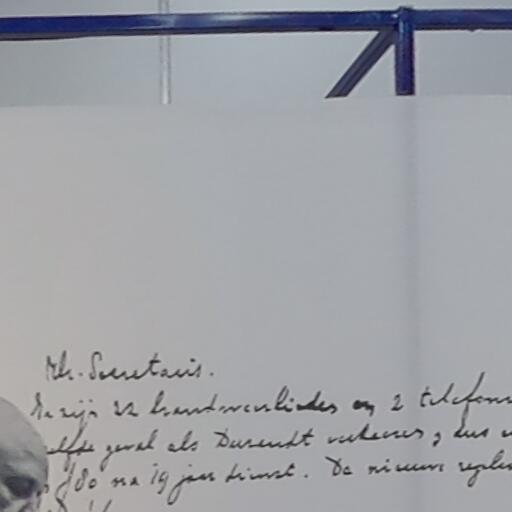 Mr. Secretaris.
Er zijn 22 brandweerlieden en 2 telefon
zelfde geval als Durendt verkeeren, dus
f 180 na 19 jaar dienst. De nieuwe regle